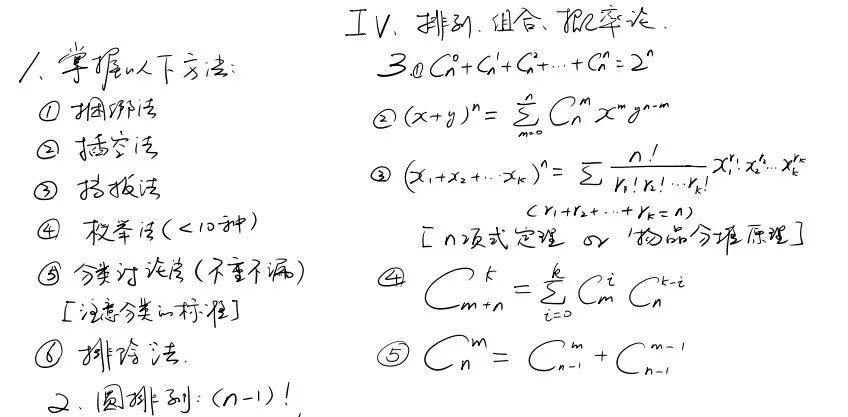 IV、排列、组合、概率论.
1、掌握以下方法:
① 捆绑法
② 插空法
③ 挡板法
④ 枚举法(<10种)
⑤ 分类讨论法(不重不漏)
[注意分类的标准]
⑥ 排除法.
2、圆排列:(n-1)!.
3.① C_n^0+C_n^1+C_n^2+…+C_n^n=2^n
② (x+y)^n = ∑_{m=0}^{n} C_n^m x^m y^{n-m}
③ (x_1+x_2+…x_k)^n = ∑ \frac{n!}{r_1!r_2!…r_k!} x_1^{r_1}·x_2^{r_2}…x_k^{r_k}
(r_1+r_2+…+r_k=n)
[n项式定理 or 物品分堆原理]
④ C_{m+n}^k = ∑_{i=0}^{k} C_m^i C_n^{k-i}
⑤ C_n^m = C_{n-1}^m + C_{n-1}^{m-1}